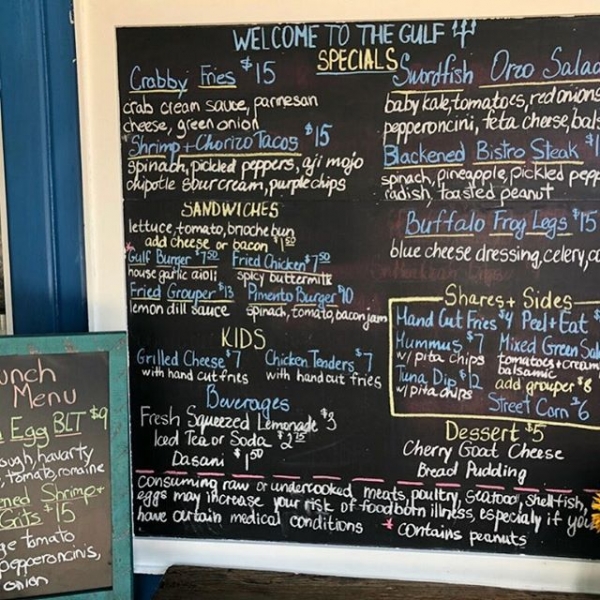 WELCOME TO THE GULF
SPECIALS
Crabby Fries $15
crab cream sauce, parmesan
cheese, green onion
Shrimp + Chorizo Tacos $15
spinach, pickled peppers, aji mojo
chipotle sour cream, purple chips
Swordfish Orzo Salad
baby kale, tomatoes, red onions
pepperoncini, feta cheese, bals
Blackened Bistro Steak $1
spinach, pineapple, pickled pepp
radish, toasted peanut
Buffalo Frog Legs $15
blue cheese dressing, celery, ca
SANDWICHES
lettuce, tomato, brioche bun
add cheese or bacon $1.50
Gulf Burger $7.50 Fried Chicken $7.50
house garlic aioli spicy buttermilk
Fried Grouper $13 Pimento Burger $10
lemon dill sauce spinach, tomato, bacon jam
KIDS
Grilled Cheese $7 Chicken Tenders $7
with hand cut fries with hand cut fries
Beverages
Fresh Squeezed Lemonade $3
Iced Tea or Soda $2.75
Dasani $1.50
Shares + Sides
Hand Cut Fries $4 Peel + Eat $
Hummus $7 Mixed Green Sal
w/ pita chips tomatoes + cream
balsamic
Tuna Dip $12 add grouper $8
w/ pita chips
Street Corn $6
Dessert $5
Cherry Goat Cheese
Bread Pudding
consuming raw or undercooked meats, poultry, seafood, shellfish,
eggs may increase your risk of foodborn illness, especially if you
have certain medical conditions * contains peanuts
unch
Menu
Egg BLT $9
ough, havarty
, tomato, romaine
ened Shrimp +
Grits $15
ge tomato
pepperoncinis,
onion